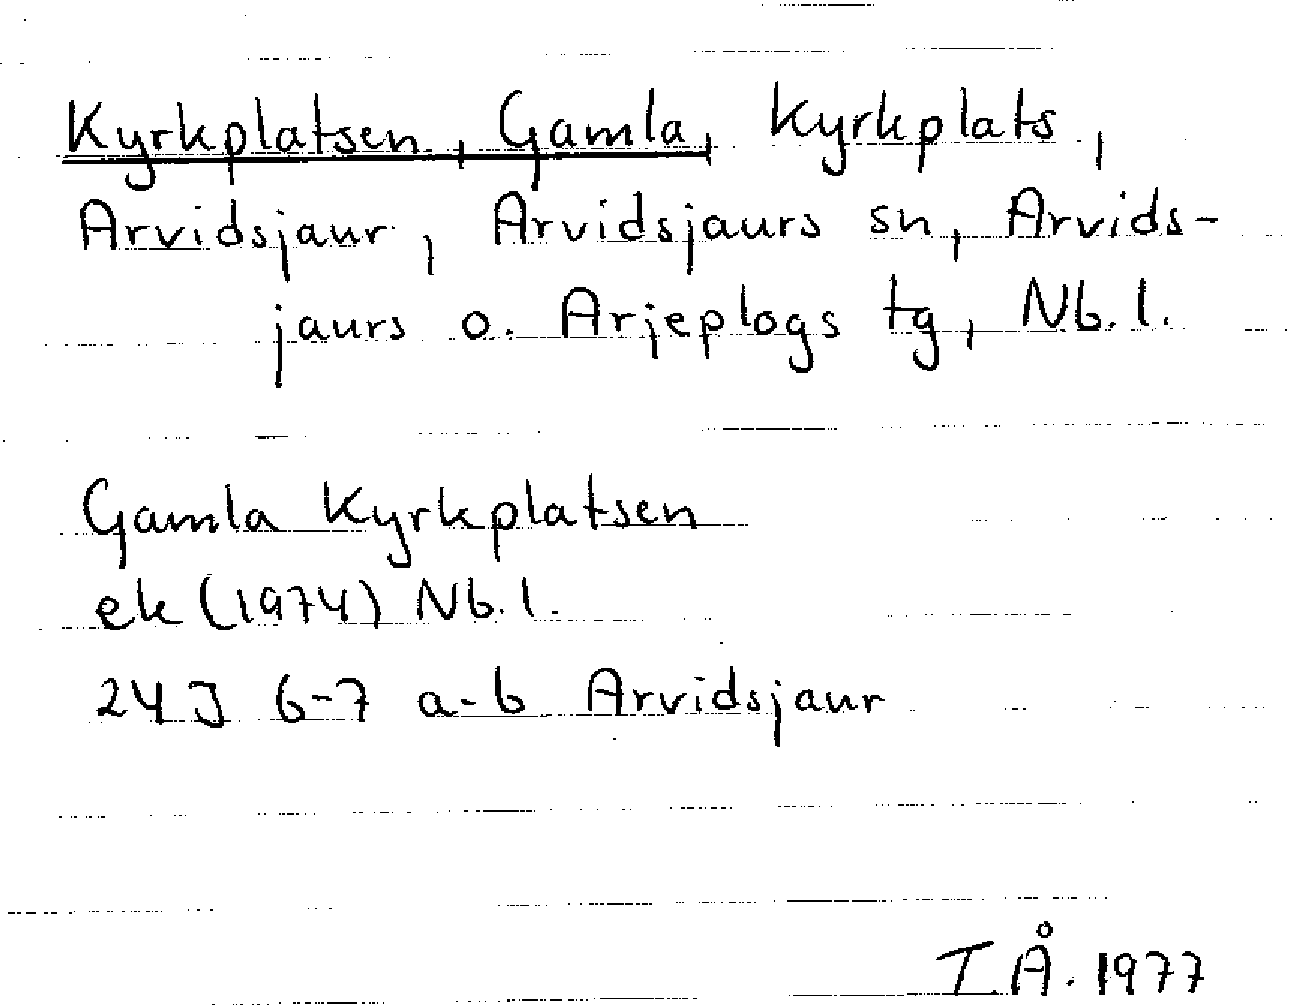 Kyrkplatsen, Gamla, kyrkplats,
Arvidsjaur, Arvidsjaurs sn, Arvids-
jaurs o. Arjeplogs tg, Nb.l.
Gamla Kyrkplatsen
ek (1974) Nb.l.
24J 6-7 a-b Arvidsjaur
I.Å. 1977